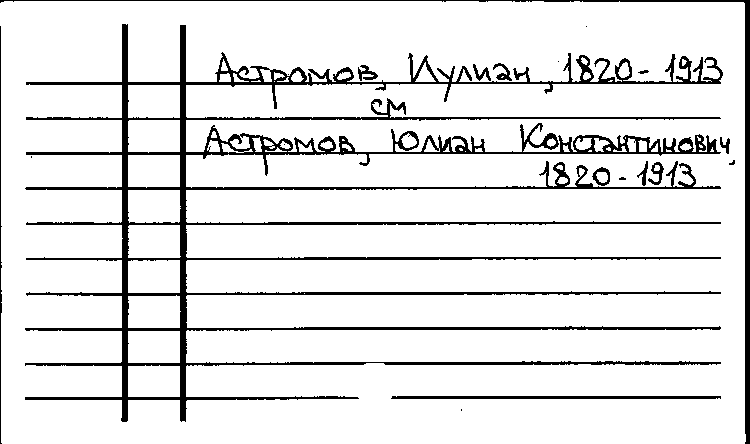 Астромов, Иулиан, 1820-1913
см
Астромов, Юлиан Константинович,
1820-1913